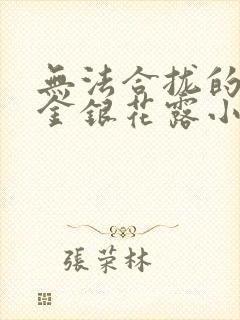 無法合拢的
金銀花露小
張荣林